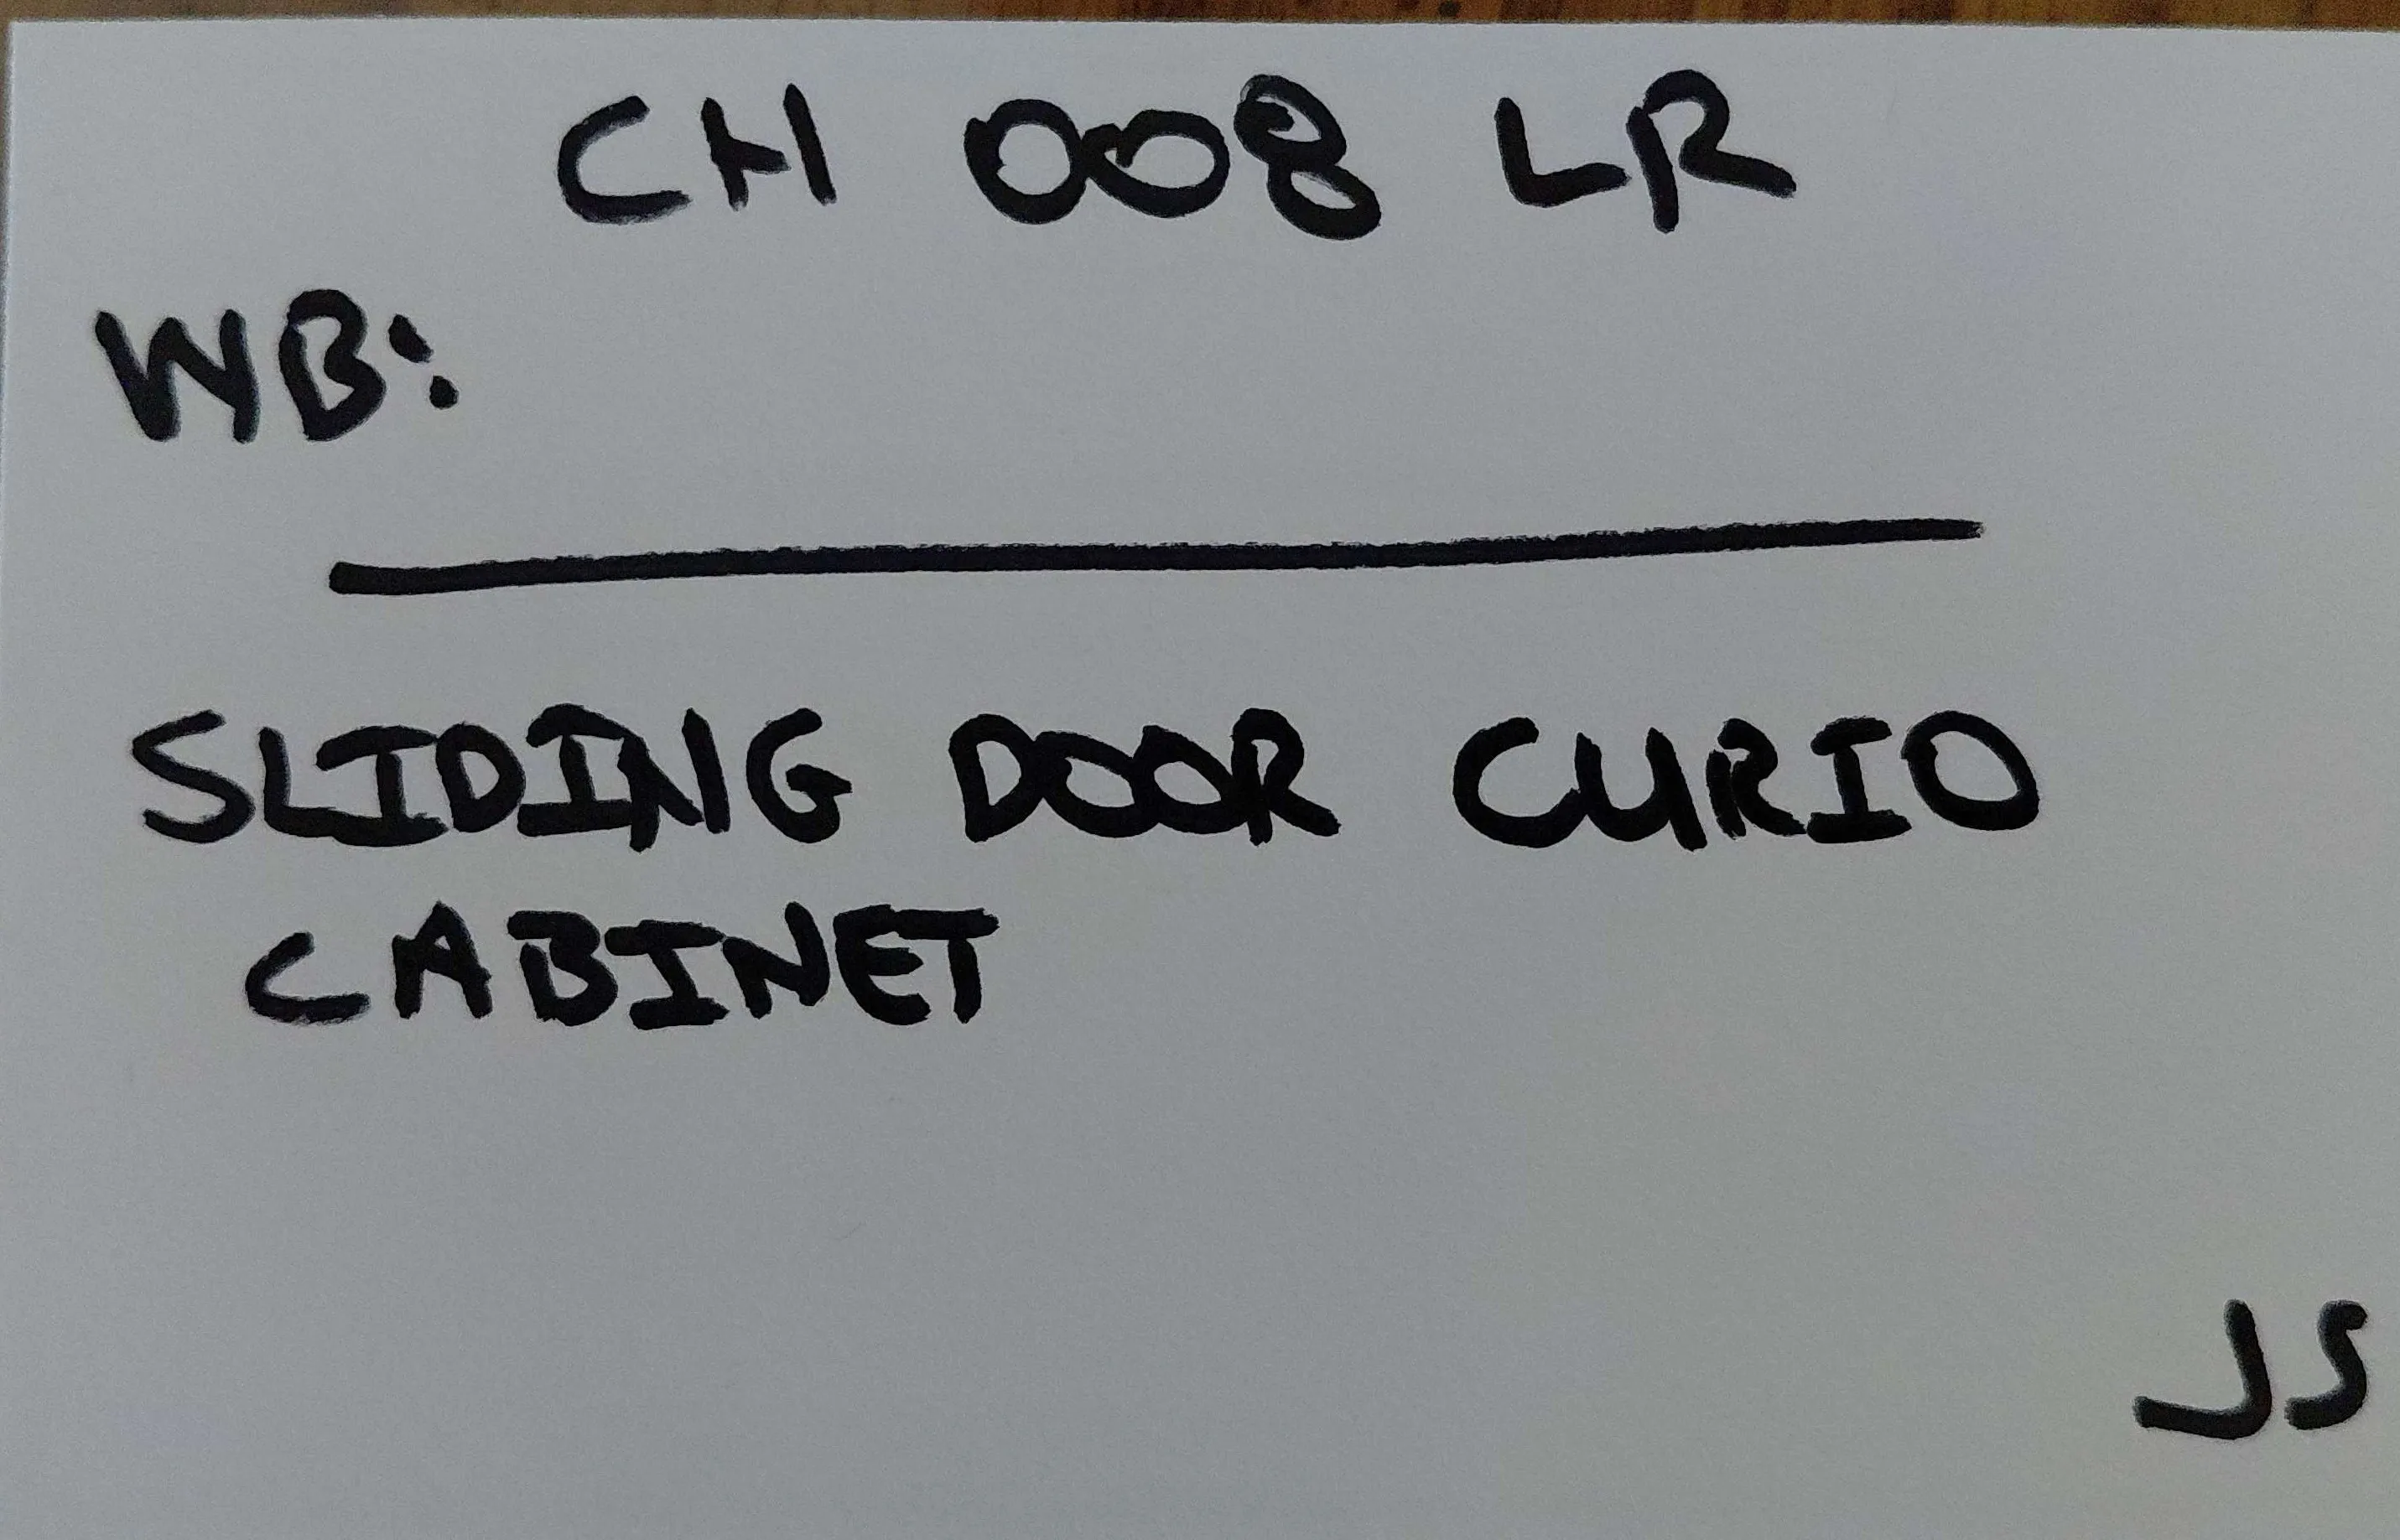 CH 008 LR
WB:
SLIDING DOOR CURIO
CABINET
JS